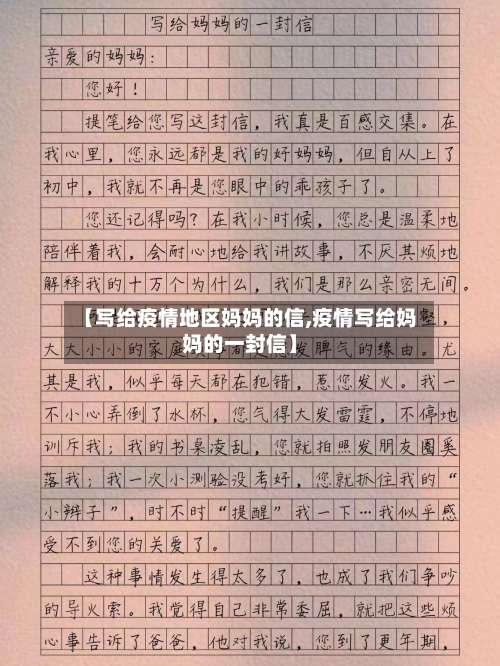 写给妈妈的一封信
亲爱的妈妈：
您好！
提笔给您写这封信，我真是百感交集。在
我心里，您永远都是我的好妈妈，但自从上了
初中，我就不再是您眼中的乖孩子了。
您还记得吗？在我小时候，您总是温柔地
陪伴着我，会耐心地给我讲故事，不厌其烦地
解释我的十万个为什么，我们是那么亲密无间。
【写给疫情地区妈妈的信,疫情写给妈
妈的一封信】
大大小小的家庭 发脾气的缘由。尤
其是我，似乎每天都在犯错，惹您发火。我一
不小心弄倒了水杯，您气得大发雷霆，不停地
训斥我；我的书桌凌乱，您就拍照发朋友圈奚
落我；我一次小测验没考好，您就抓住我的“
小辫子”，时不时“提醒”我一下…我似乎感
受不到您的关爱了。
这种事情发生得太多了，也成了我们争吵
的导火索。我觉得自己非常委屈，就把这些烦
心事告诉了爸爸，他对我说，您到了更年期，